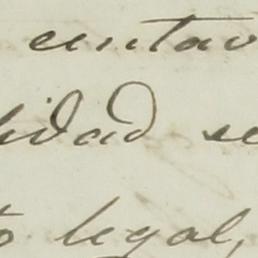 centav
lidad se
to legal,